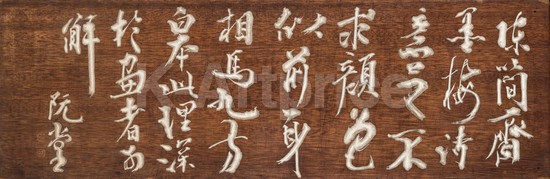 陳簡齋
墨梅詩
意足不
求顔色
似前身
相馬九方
皐此理深
於畫者可
解
阮堂
K-Artprice